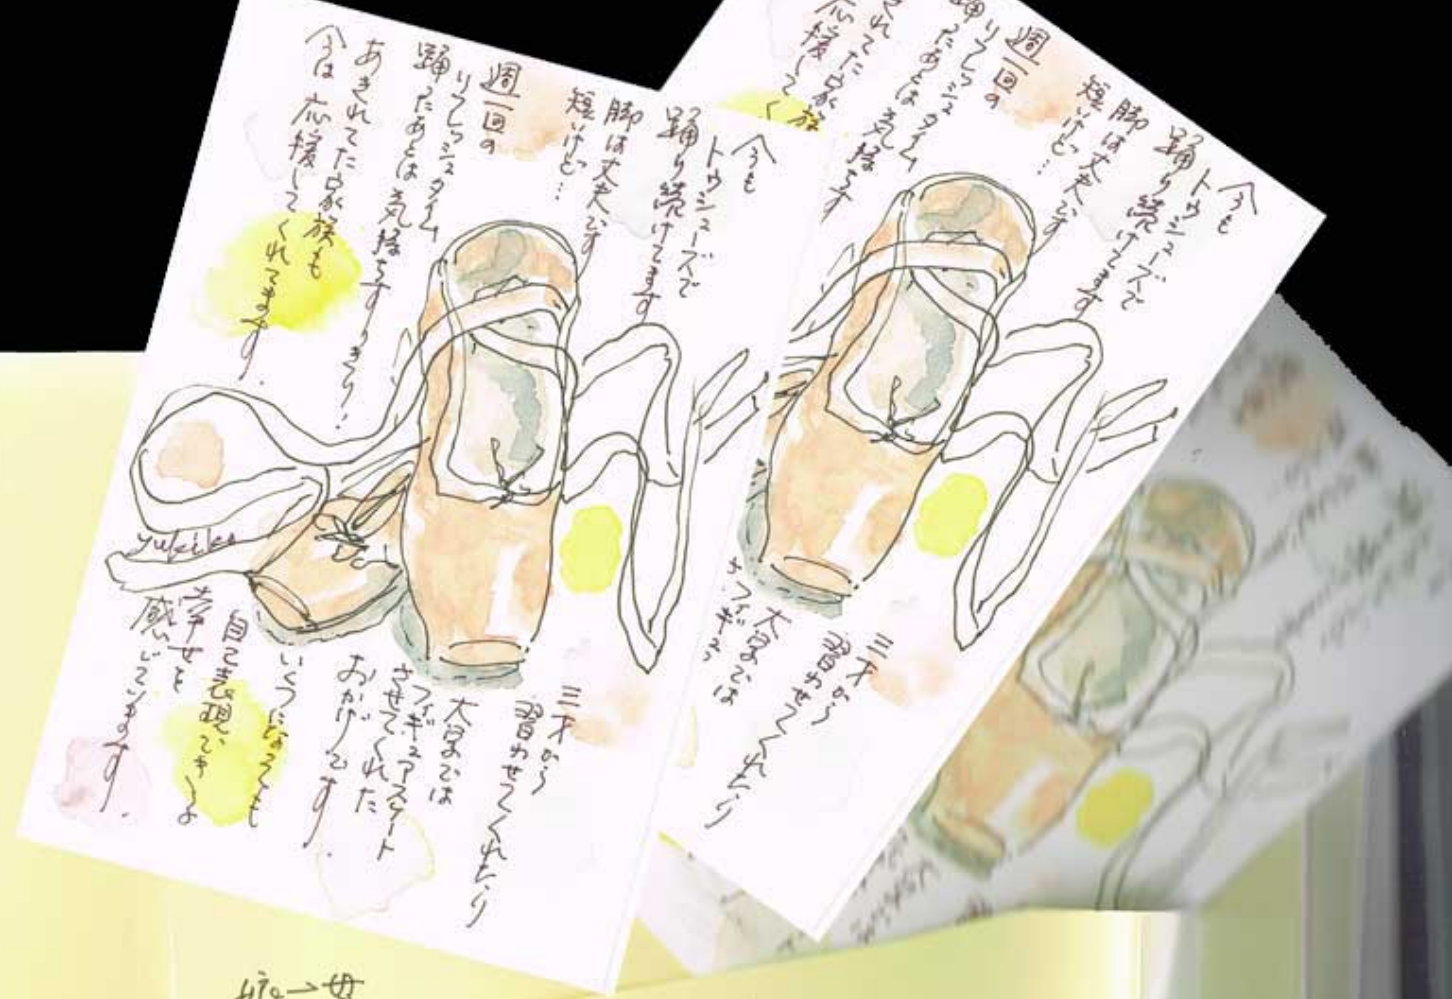 今も
トウシューズで
踊り続けてます
脚は丈夫です
短いけど…
週一回の
リフレッシュタイム
踊ったあとは気持ちすっきり!
あきれてた家族も
今は応援してくれてます。
三才から
習わせてくれたり
大学では
フィギュアスケート
させてくれた
おかげです。
いくつになっても
自己表現できるよ
幸せを
感じています。
yukiko
今も
トウシューズで
踊り続けてます
脚は丈夫です
短いけど…
週一回の
リフレッシュタイム
踊ったあとは気持ちす
れてた家族
応援してく
三才から
習わせてくれたり
大学では
フィギュア